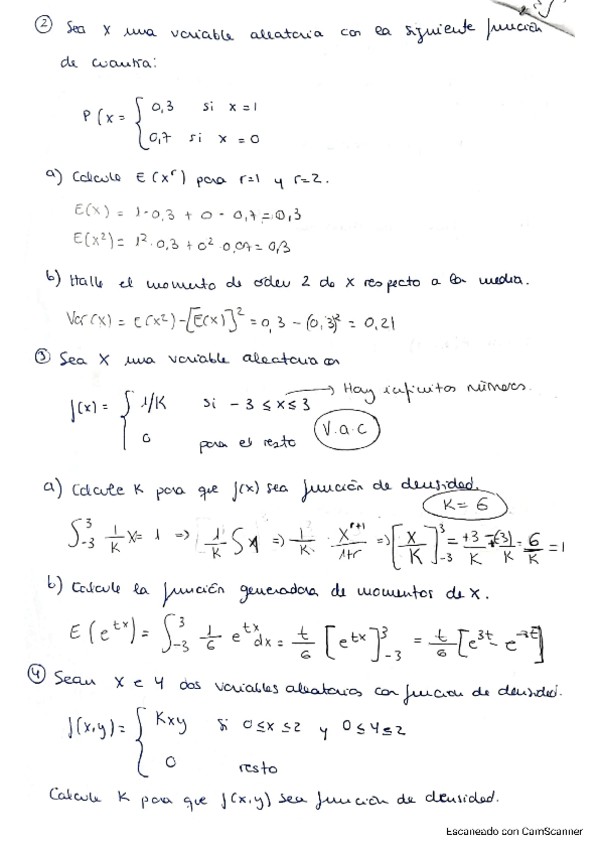 ② Sea X una variable aleatoria con la siguiente función
de cuantía:
P(x = { 0,3 si x=1
0,7 si x = 0
a) Calcule E(X^r) para r=1 y r=2.
E(X) = 1·0,3 + 0 - 0,7 = 0,3
E(X²) = 1²·0,3 + 0²·0,07 = 0,3
b) Halle el momento de orden 2 de X respecto a la media.
Var(X) = E(X²) - [E(X)]² = 0,3 - (0,3)² = 0,21
③ Sea X una variable aleatoria con
f(x) = { 1/K si -3 ≤ x ≤ 3 → Hay infinitos números.
0 para el resto V.a.c
a) Calcule K para que f(x) sea función de densidad.
K = 6
∫₋₃³ 1/K x = 1 => 1/K ∫ 1 => 1/K · x^(r+1)/(1+r) => [x/K]₋₃³ = +3/K - (-3)/K = 6/K = 1
b) Calcule la función generadora de momentos de X.
E(e^(tx)) = ∫₋₃³ 1/6 e^(tx) dx = t/6 [e^(tx)]₋₃³ = t/6 [e^(3t) - e^(-3t)]
④ Sean X e Y dos variables aleatorias con función de densidad.
f(x,y) = { Kxy si 0≤x≤2 y 0≤y≤2
0 resto
Calcule K para que f(x,y) sea función de densidad.
Escaneado con CamScanner